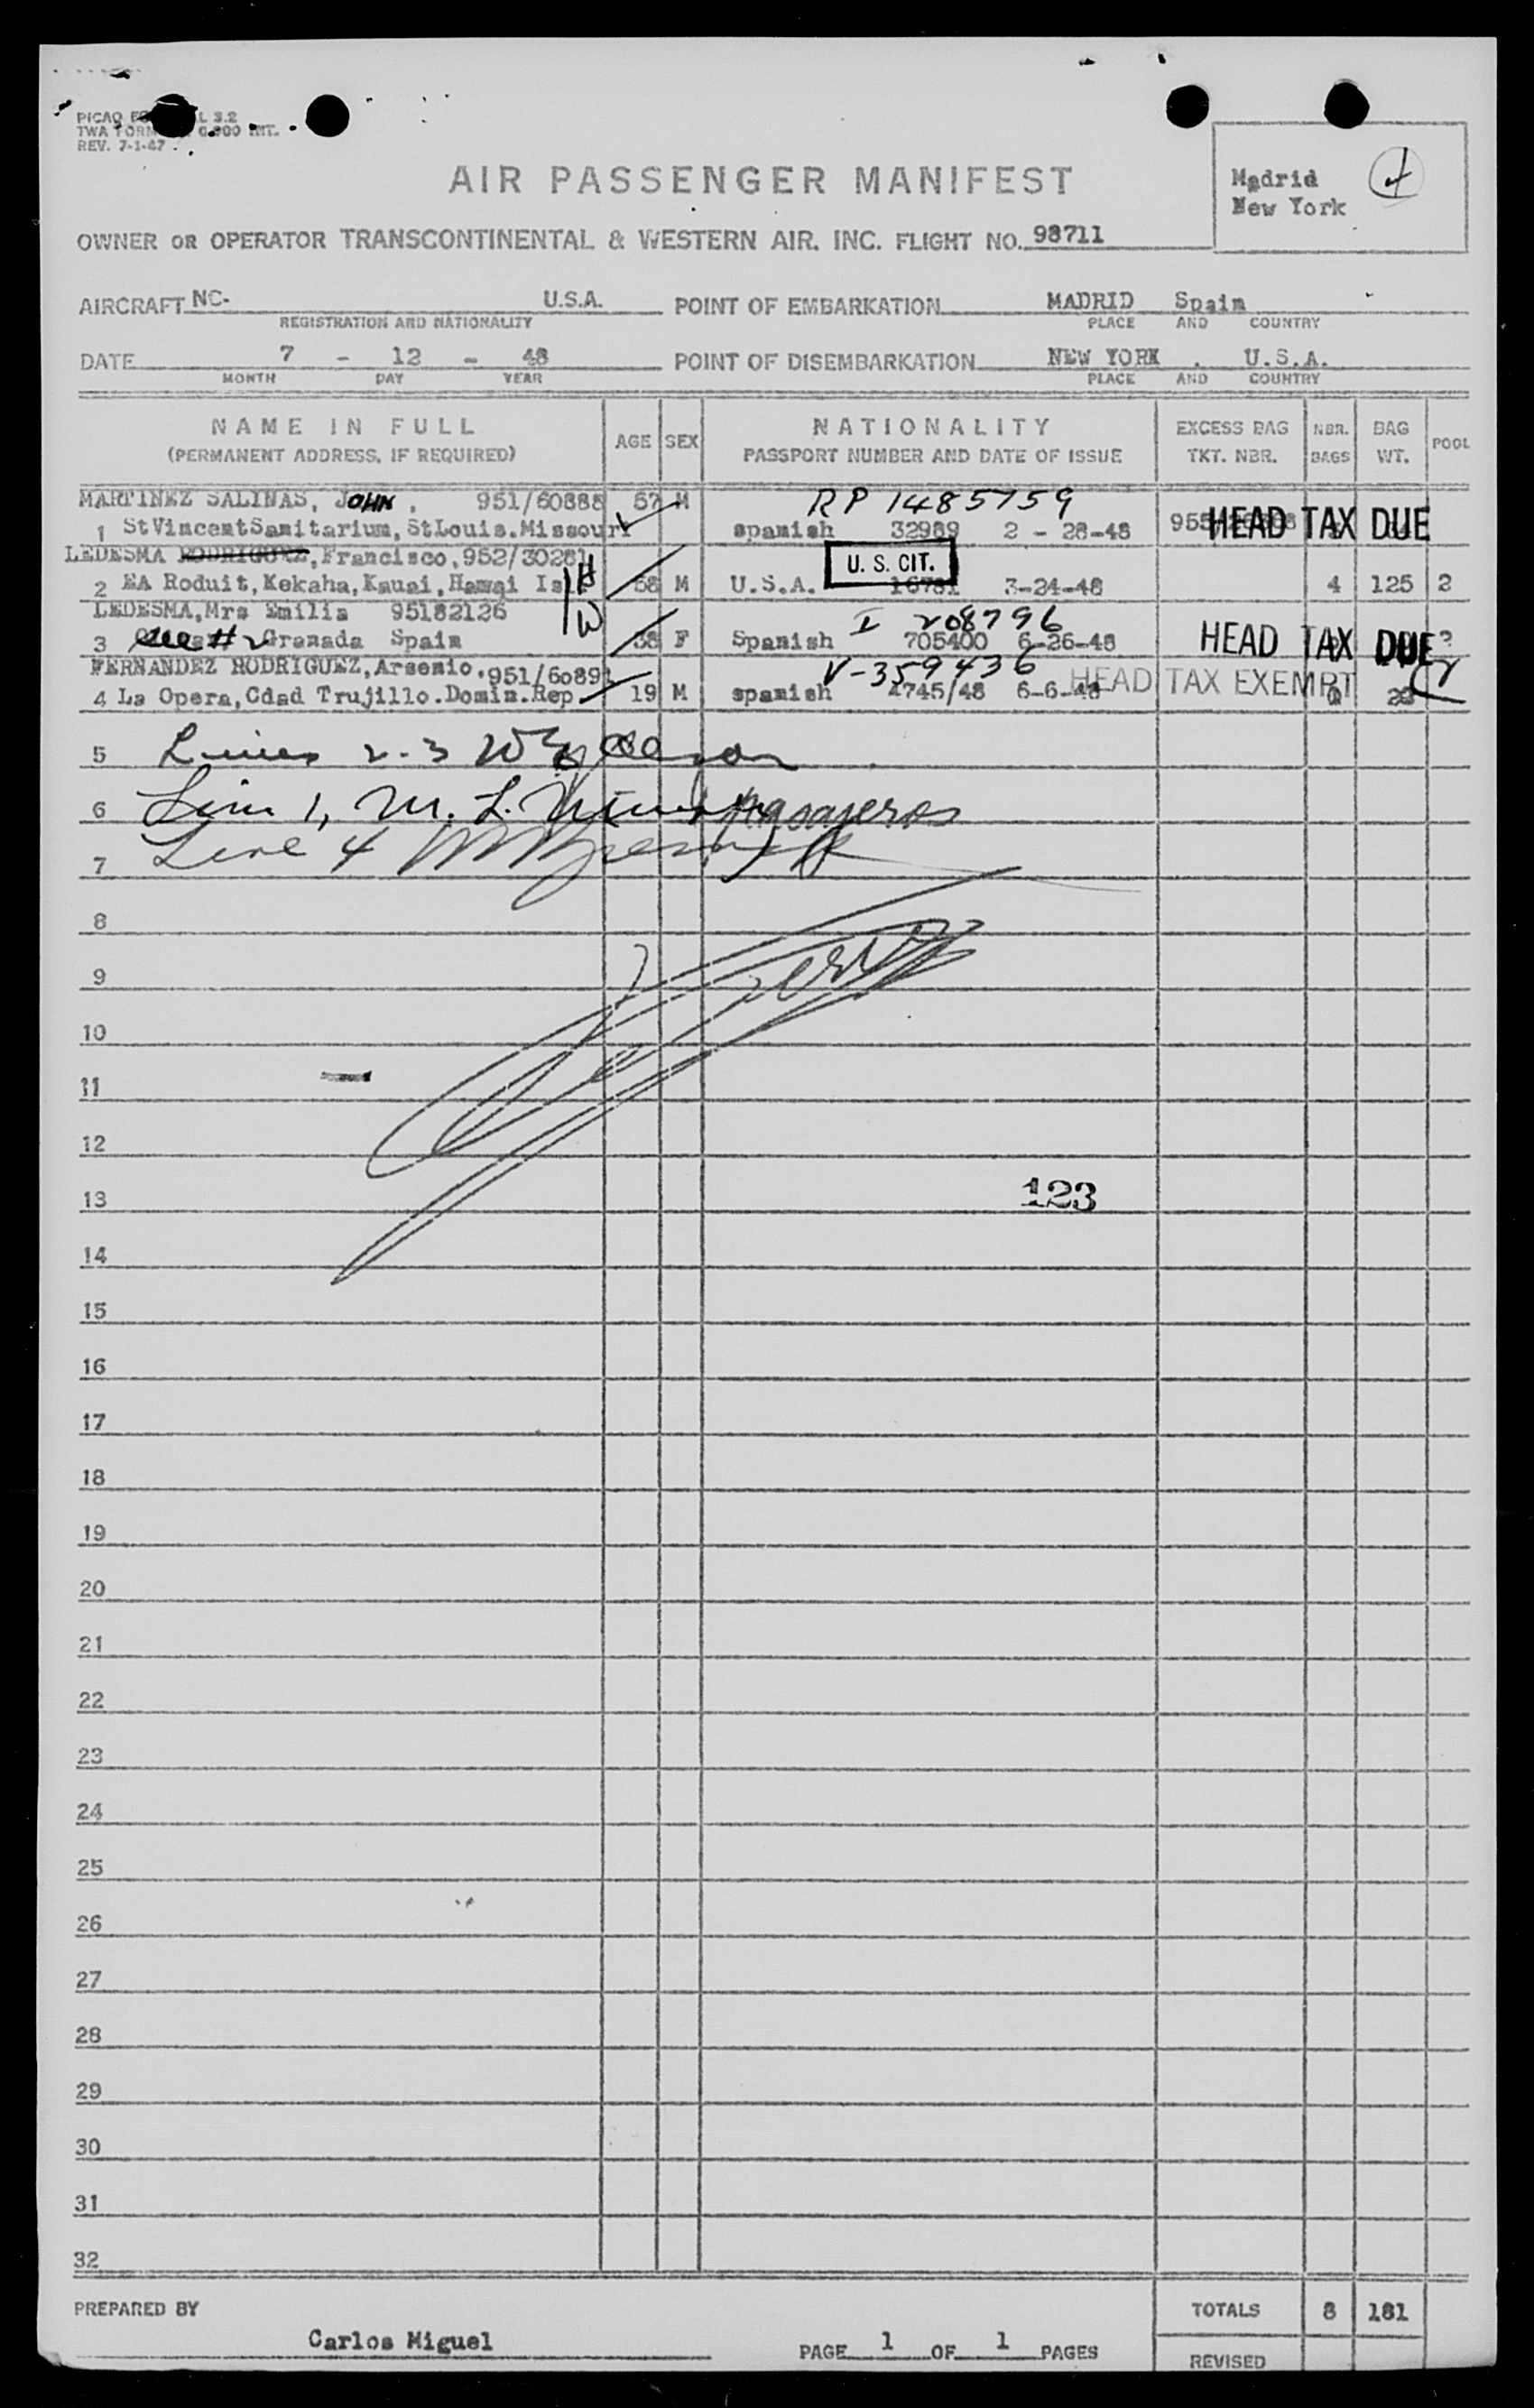 PICAO
TWA FORM INT.
REV. 7-1-47
AIR PASSENGER MANIFEST
Madrid
New York
OWNER OR OPERATOR TRANSCONTINENTAL & WESTERN AIR, INC. FLIGHT NO. 98711
AIRCRAFT NC- U.S.A. POINT OF EMBARKATION MADRID Spain
REGISTRATION AND NATIONALITY PLACE AND COUNTRY
DATE 7 - 12 - 48 POINT OF DISEMBARKATION NEW YORK . U.S.A.
MONTH DAY YEAR PLACE AND COUNTRY
NAME IN FULL AGE SEX NATIONALITY EXCESS BAG NBR. BAG POOL
(PERMANENT ADDRESS, IF REQUIRED) PASSPORT NUMBER AND DATE OF ISSUE TKT. NBR. BAGS WT.
MARTINEZ SALINAS, JOHN, 951/60888 57 M RP 1485759
1 StVincentSanitarium, StLouis.Missouri spanish 32989 2 - 28-48 HEAD TAX DUE
LEDESMA RODRIGUEZ, Francisco, 952/30281 H U. S. CIT.
2 EA Roduit, Kekaha, Kauai, Hawai Isl 58 M U.S.A. 16781 3-24-48 4 125 2
LEDESMA, Mrs Emilia 95182126 W I 208796
3 See # 2 Granada Spain 38 F Spanish 705400 6-26-48 HEAD TAX DUE
FERNANDEZ RODRIGUEZ, Arsenio. 951/60891 V-359436
4 La Opera, Cdad Trujillo. Domin. Rep 19 M spanish 4745/48 6-6-48 HEAD TAX EXEMPT
5 Lines 2-3
6 Line 1, M. L. pasajeros
7 Line 4
8
9
10
11
12
13 123
14
15
16
17
18
19
20
21
22
23
24
25
26
27
28
29
30
31
32
PREPARED BY Carlos Miguel PAGE 1 OF 1 PAGES TOTALS 8 181
REVISED